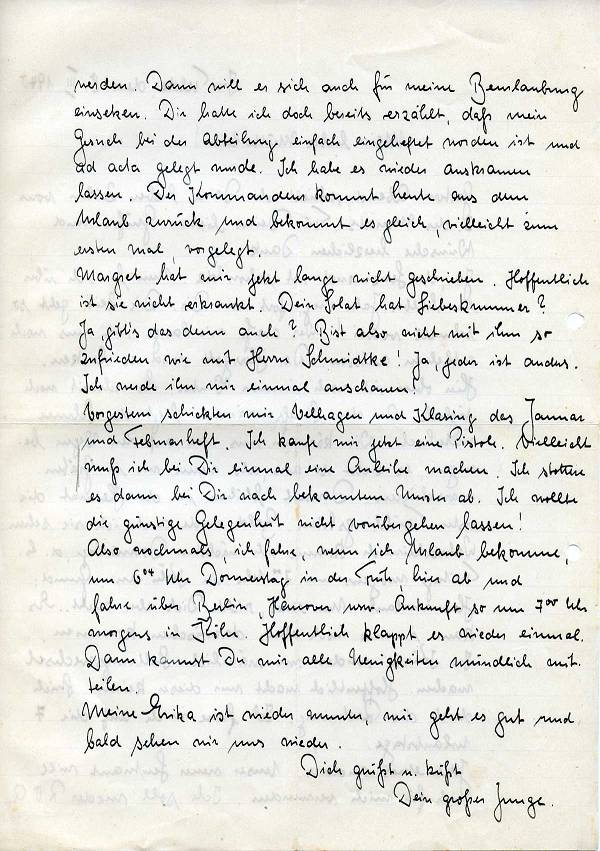 werden. Dann will er sich auch für meine Beurlaubung
einsetzen. Dir hatte ich doch bereits erzählt, daß mein
Gesuch bei der Abteilung einfach eingeheftet worden ist und
ad acta gelegt wurde. Ich habe es wieder auskramen
lassen. Der Kommandeur kommt heute aus dem
Urlaub zurück und bekommt es gleich, vielleicht zum
ersten mal, vorgelegt.
Margret hat mir jetzt lange nicht geschrieben. Hoffentlich
ist sie nicht erkrankt. Dein Solat hat Liebeskummer?
Ja gibt's das denn auch? Bist also nicht mit ihm so
zufrieden wie mit Herrn Schmidtke! Ja jeder ist anders.
Ich werde ihn mir einmal anschauen!
Vorgestern schickten mir Velhagen und Klasing das Januar
und Februarheft. Ich kaufe mir jetzt eine Pistole. Vielleicht
muß ich bei Dir einmal eine Anleihe machen. Ich stottere
es dann bei Dir nach bekanntem Muster ab. Ich wollte
die günstige Gelegenheit nicht vorübergehen lassen!
Also nochmals, ich fahre, wenn ich Urlaub bekomme,
um 6⁰⁴ Uhr Donnerstag in der Früh, hier ab und
fahre über Berlin, Hanover usw. Ankunft so um 7⁰⁰ Uhr
morgens in Köln. Hoffentlich klappt es wieder einmal.
Dann kannst Du mir alle Neuigkeiten mündlich mit-
teilen.
Meine Erika ist wieder munter, mir geht es gut und
bald sehen wir uns wieder.
Dich grüßt u. küßt
Dein großer Junge.